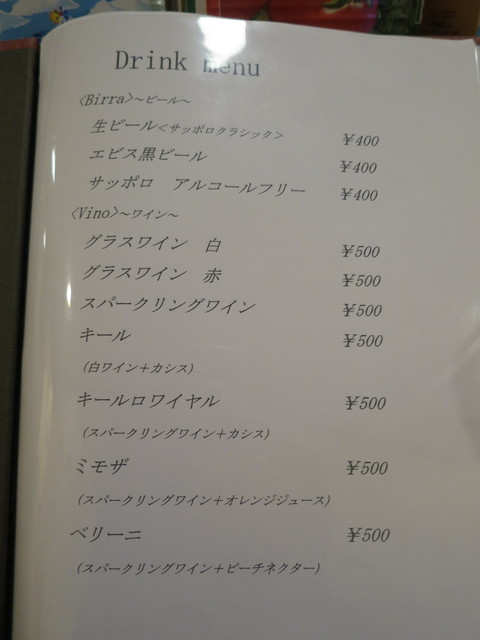 Drink menu
〈Birra〉～ビール～
生ビール＜サッポロクラシック＞ ￥400
エビス黒ビール ￥400
サッポロ　アルコールフリー ￥400
〈Vino〉～ワイン～
グラスワイン　白 ￥500
グラスワイン　赤 ￥500
スパークリングワイン ￥500
キール ￥500
(白ワイン＋カシス)
キールロワイヤル ￥500
(スパークリングワイン＋カシス)
ミモザ ￥500
(スパークリングワイン＋オレンジジュース)
ベリーニ ￥500
(スパークリングワイン＋ピーチネクター)